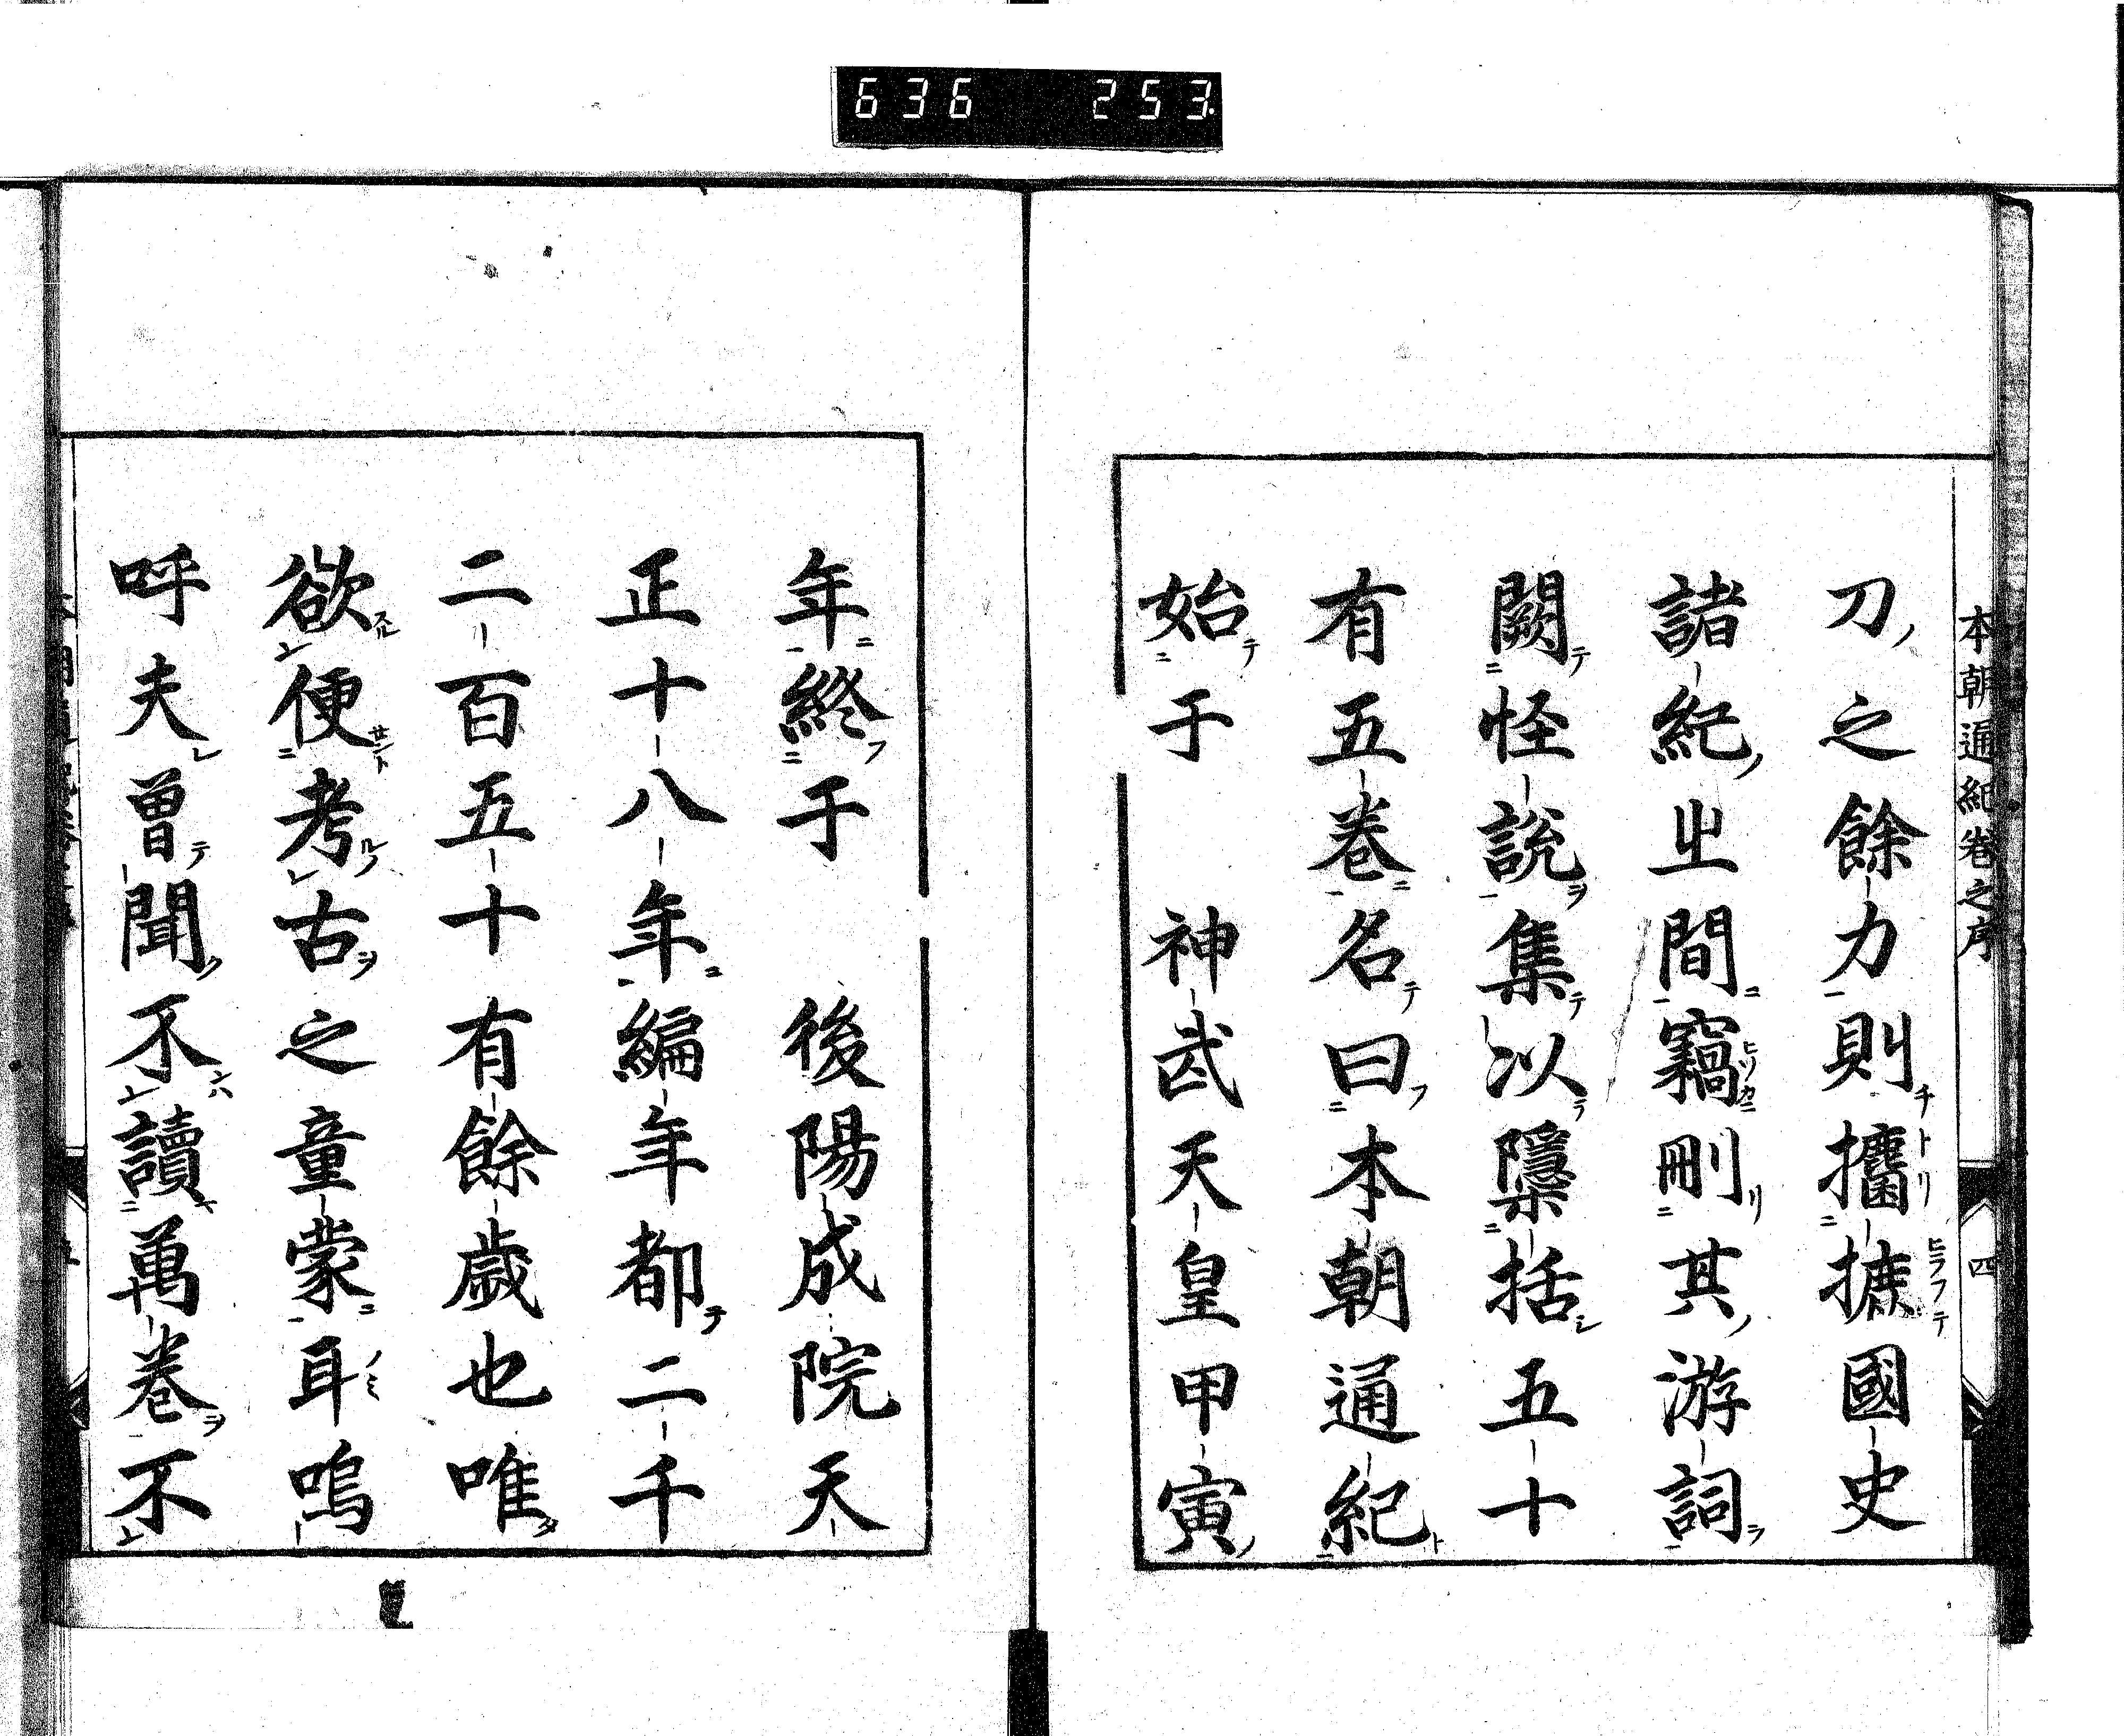 636 253
本朝通紀卷之序 四
刀之餘力則攟摭國史
諸紀㞢間竊刪其游詞
闕怪說集以隱括五十
有五卷名曰本朝通紀
始于 神武天皇甲寅
年終于 後陽成院天
正十八年編年都二千
二百五十有餘歲也唯
欲便考古之童蒙耳嗚
呼夫曽聞不讀萬卷不